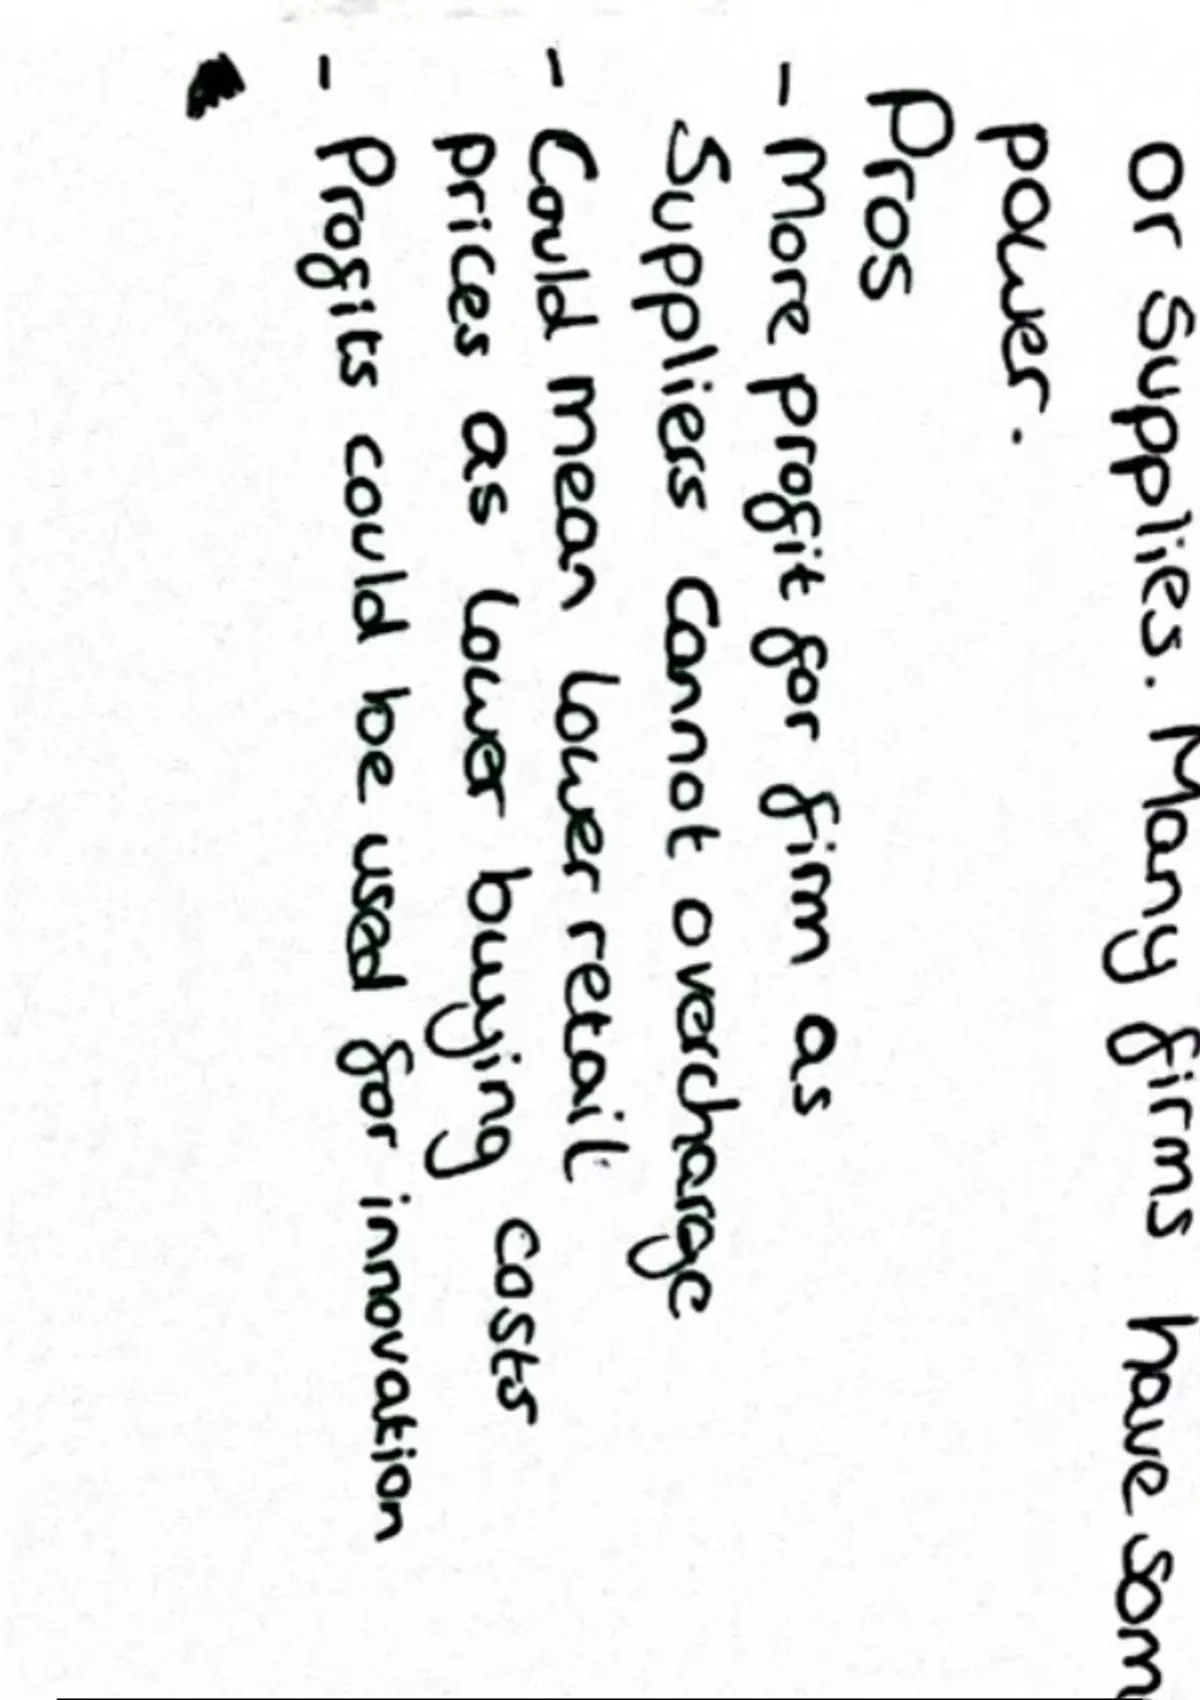 or Supplies. Many firms have som
power.
Pros
- More profit for firm as
Suppliers cannot overcharge
- Could mean lower retail
prices as lower buying costs
- Profits could be used for innovation